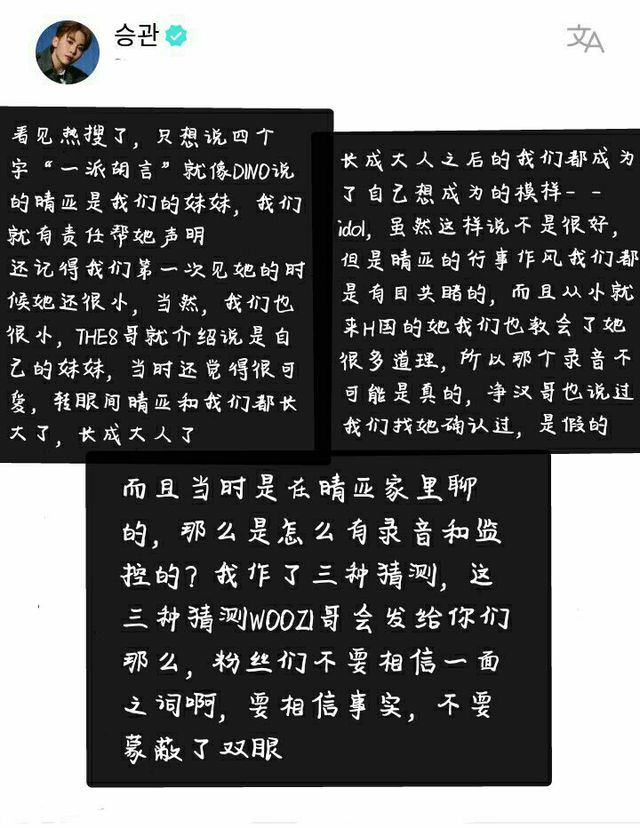 承관
看见热搜了，只想说四个
字“一派胡言”就像DINO说
的晴亚是我们的妹妹，我们
就有责任帮她声明
还记得我们第一次见她的时
候她还很小，当然，我们也
很小，THE8哥就介绍说是自
己的妹妹，当时还觉得很可
爱，转眼间晴亚和我们都长
大了，长成大人了
长成大人之后的我们都成为
了自己想成为的模样--
idol，虽然这样说不是很好，
但是晴亚的行事作风我们都
是有目共睹的，而且从小就
来H国的她我们也教会了她
很多道理，所以那个录音不
可能是真的，净汉哥也说过
我们找她确认过，是假的
而且当时是在晴亚家里聊
的，那么是怎么有录音和监
控的？我作了三种猜测，这
三种猜测WOOZI哥会发给你们
那么，粉丝们不要相信一面
之词啊，要相信事实，不要
蒙蔽了双眼